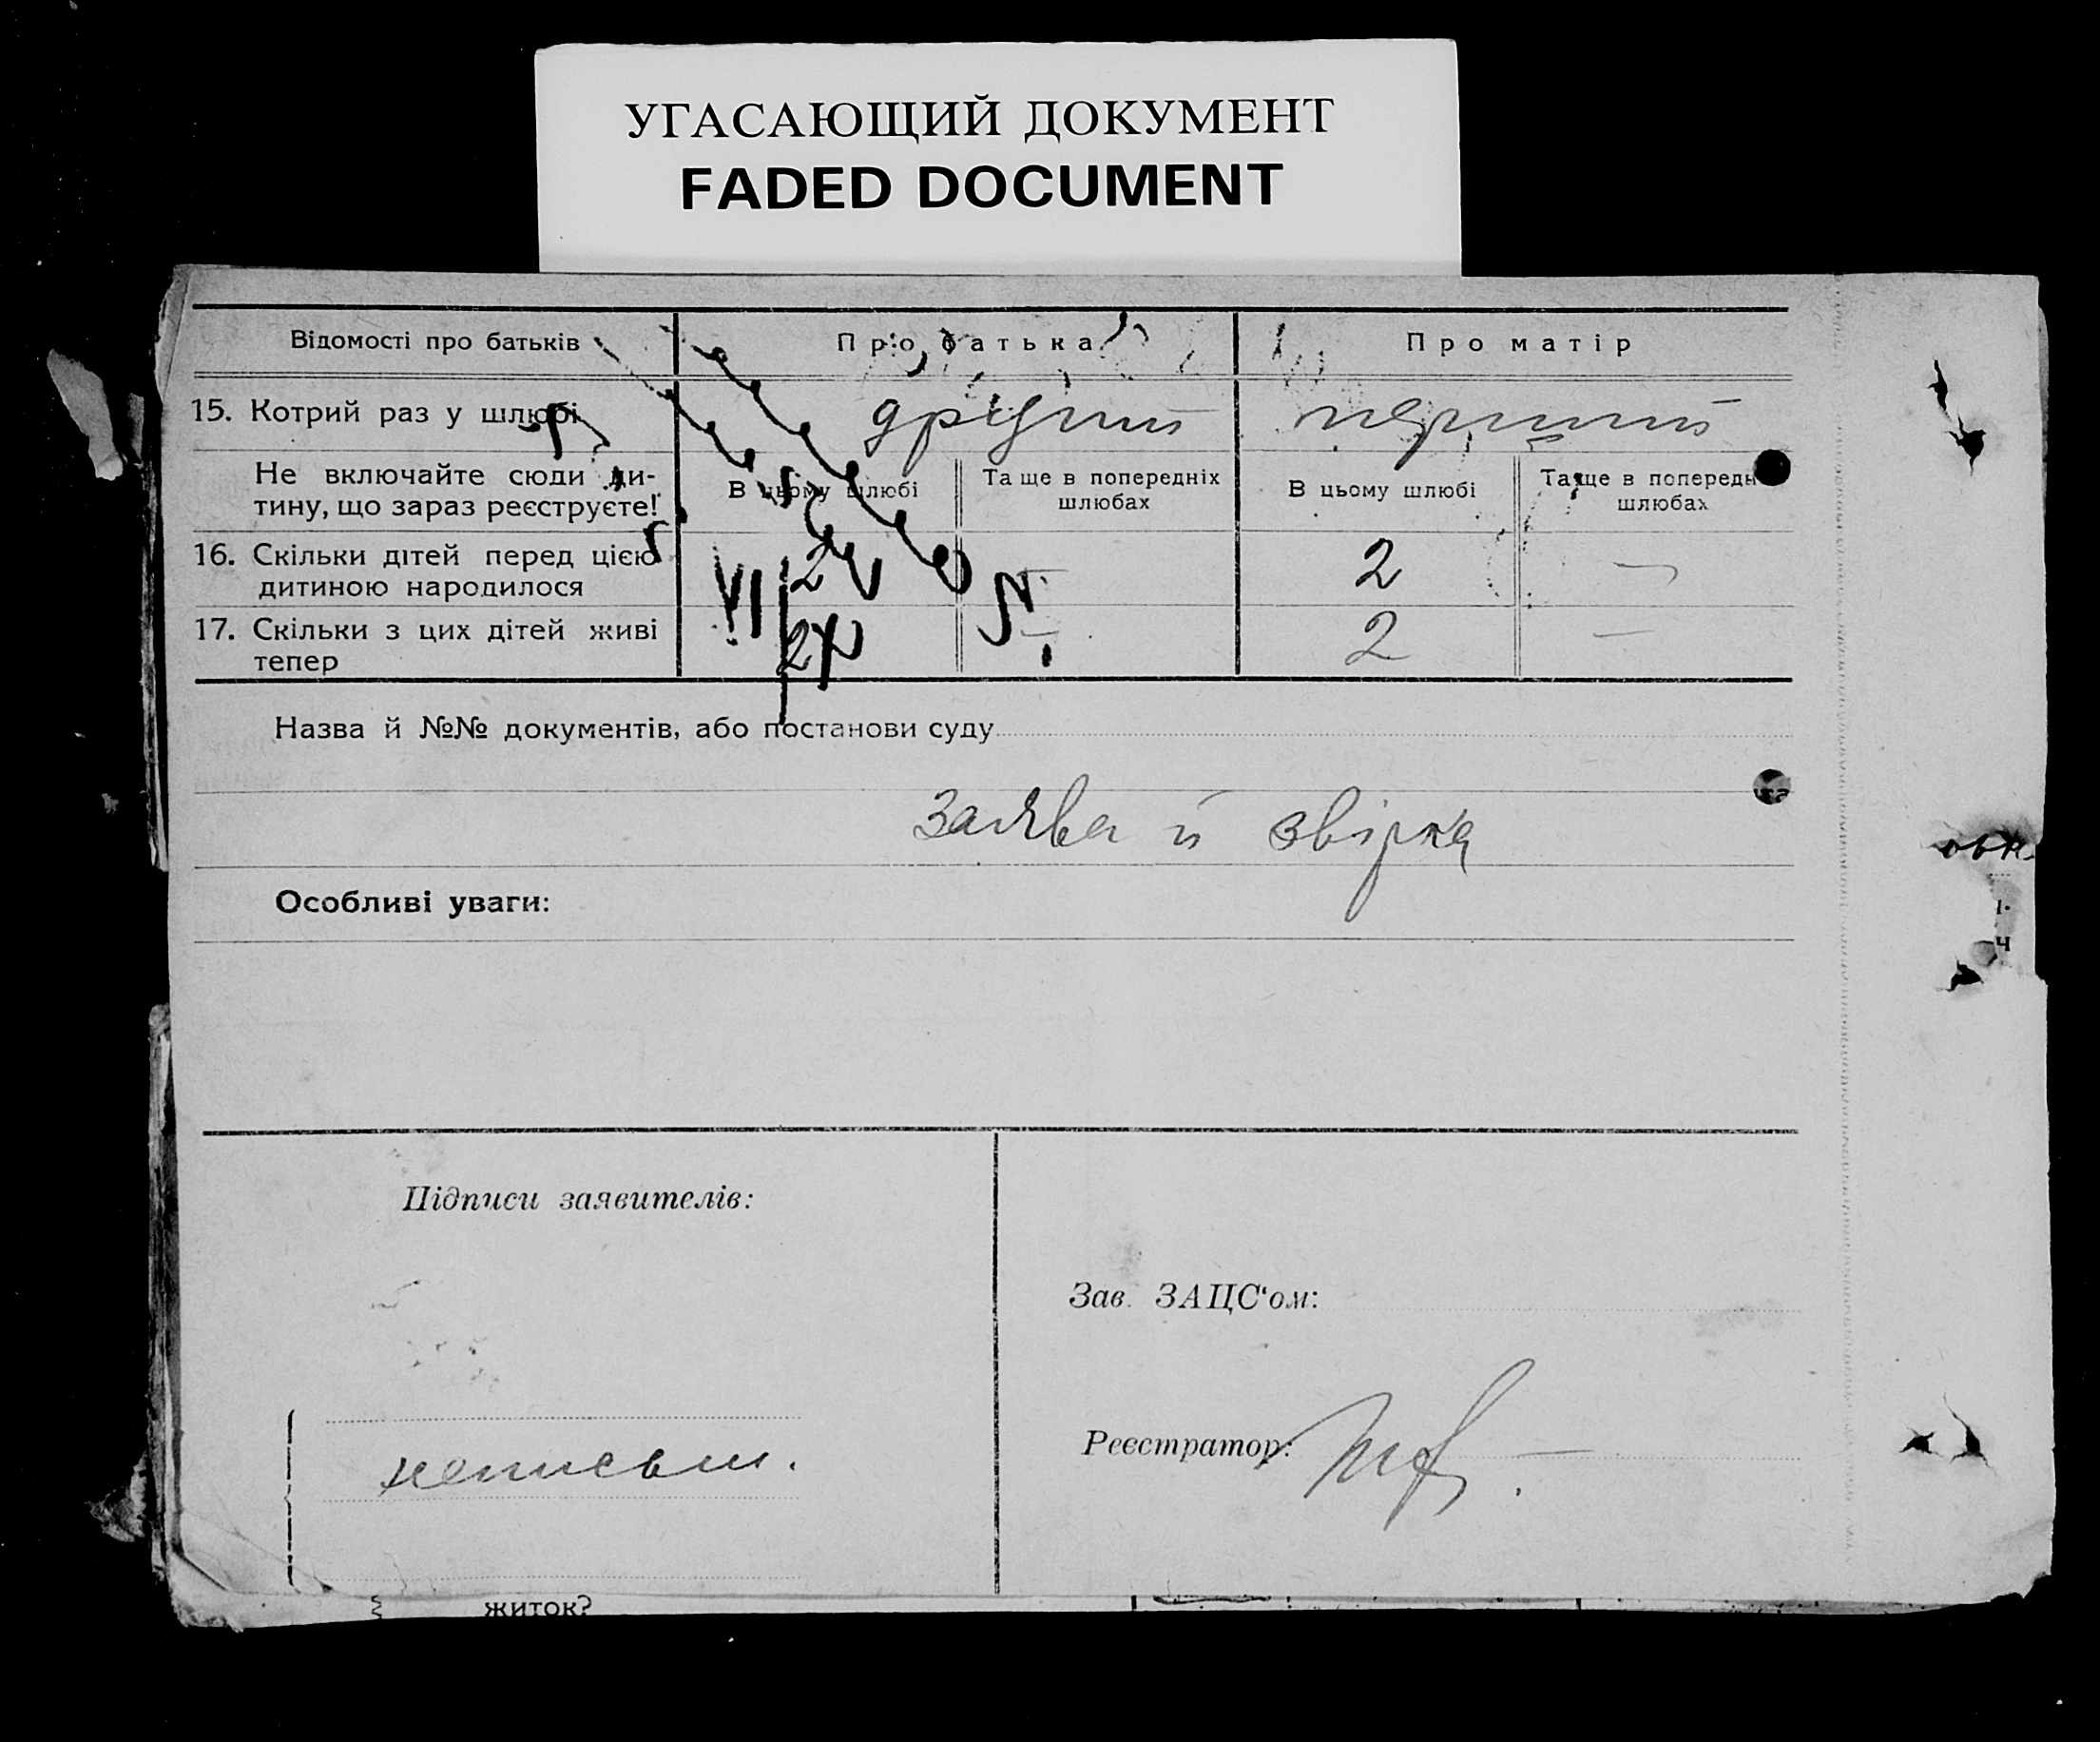 УГАСАЮЩИЙ ДОКУМЕНТ
FADED DOCUMENT
Відомості про батьків Про батька Про матір
15. Котрий раз у шлюбі другий перший
Не включайте сюди ди-
тину, що зараз реєструєте!
В цьому шлюбі Та ще в попередніх шлюбах В цьому шлюбі Та ще в попередн шлюбах
16. Скільки дітей перед цією 2 — 2 —
дитиною народилося
17. Скільки з цих дітей живі 2 — 2 —
тепер
VI
Назва й №№ документів, або постанови суду
заява й звірка
Особливі уваги:
Підписи заявителів:
Зав. ЗАЦС‘ом:
Реєстратор:
неписьм.
житок?